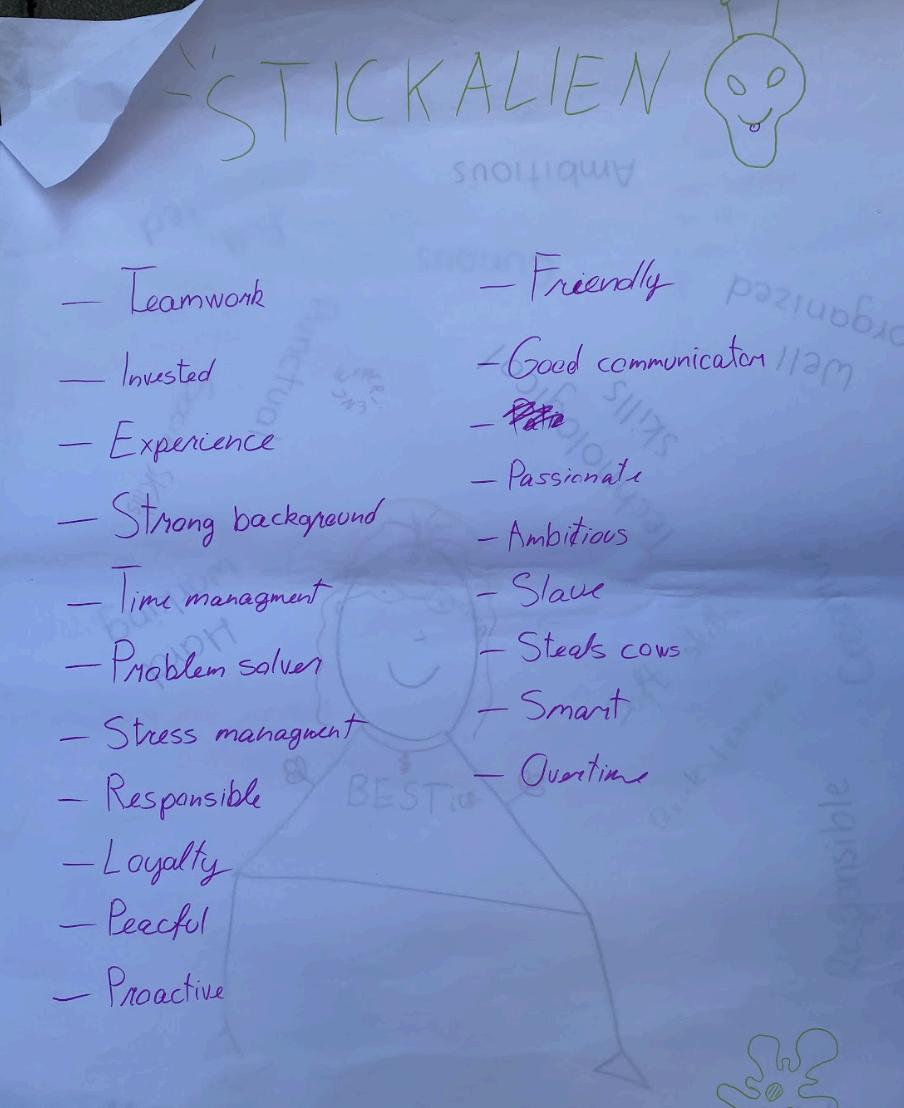 STICKALIEN
— Teamwork
— Invested
— Experience
— Strong background
— Time managment
— Problem solver
— Stress managment
— Responsible
— Loyalty
— Peacful
— Proactive
— Friendly
— Good communicator
— Passionate
— Ambitious
— Slave
— Steals cows
— Smart
— Overtime
Ambitious
Well organized
Punctual
skills
BEST
Responsible